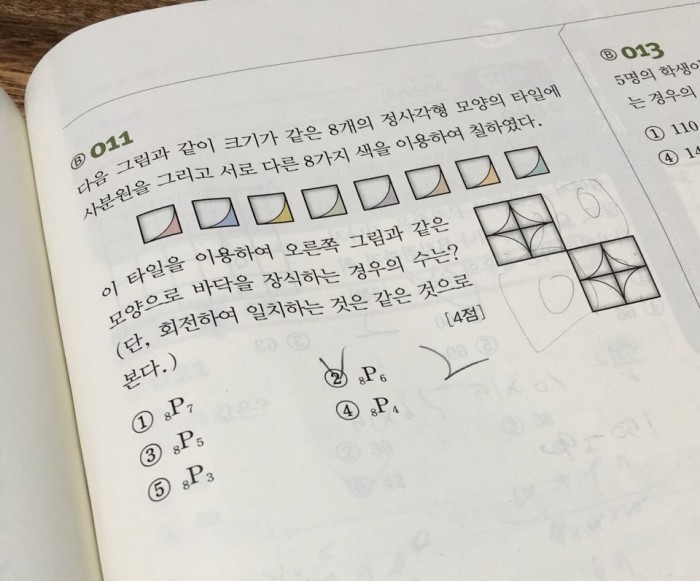 Ⓑ 011
다음 그림과 같이 크기가 같은 8개의 정사각형 모양의 타일에
사분원을 그리고 서로 다른 8가지 색을 이용하여 칠하였다.
이 타일을 이용하여 오른쪽 그림과 같은
모양으로 바닥을 장식하는 경우의 수는?
(단, 회전하여 일치하는 것은 같은 것으로
본다.)
[4점]
① ₈P₇
② ₈P₆
③ ₈P₅
④ ₈P₄
⑤ ₈P₃
Ⓑ 013
5명의 학생이
는 경우의
① 110
④ 14